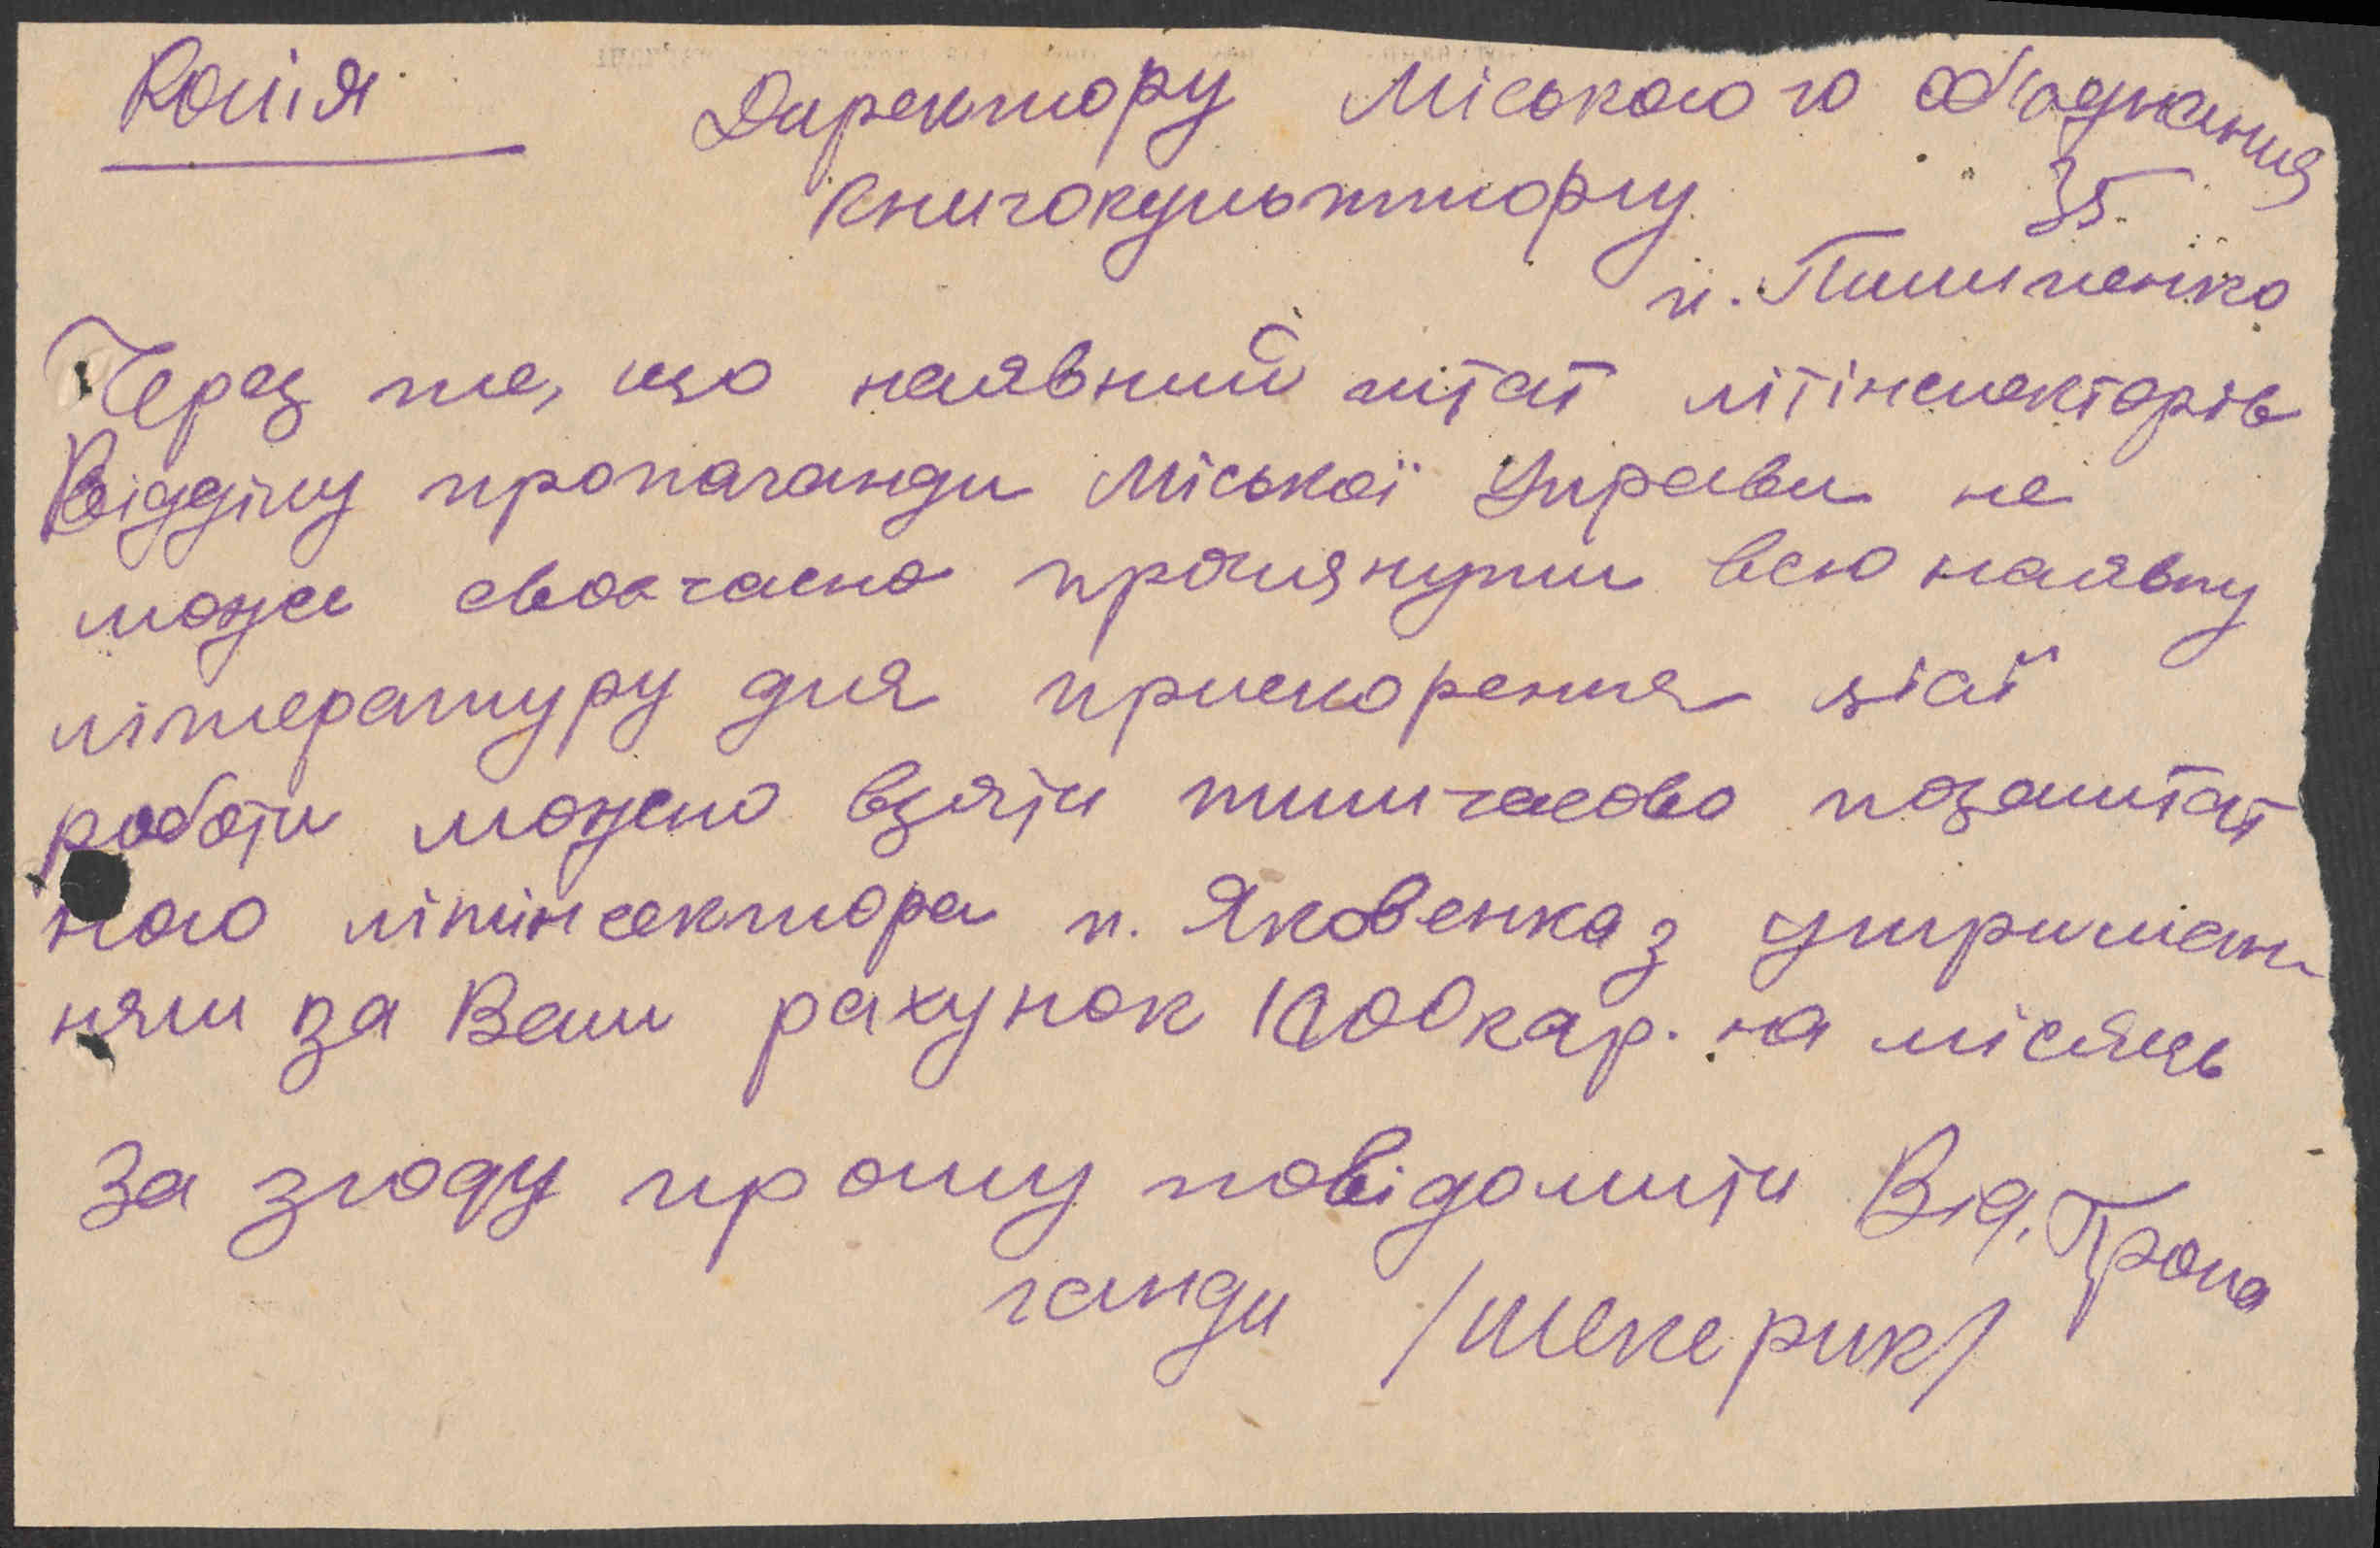 Копія
Директору Міського го об'єднання
книгокультторгу 35
п. Пилипенко
Через те, що наявний штат літінспекторів
Відділу пропаганди Міської Управи не
може своєчасно проглянути всю наявну
літературу для прискорення цієї
роботи можно взяти тимчасово позаштат
ного літінсектора п. Яковенка з утриман
ням за Ваш рахунок 1000 кар. на місяць
За згоду прошу повідомити Від. Пропа
ганди /Шекерик/